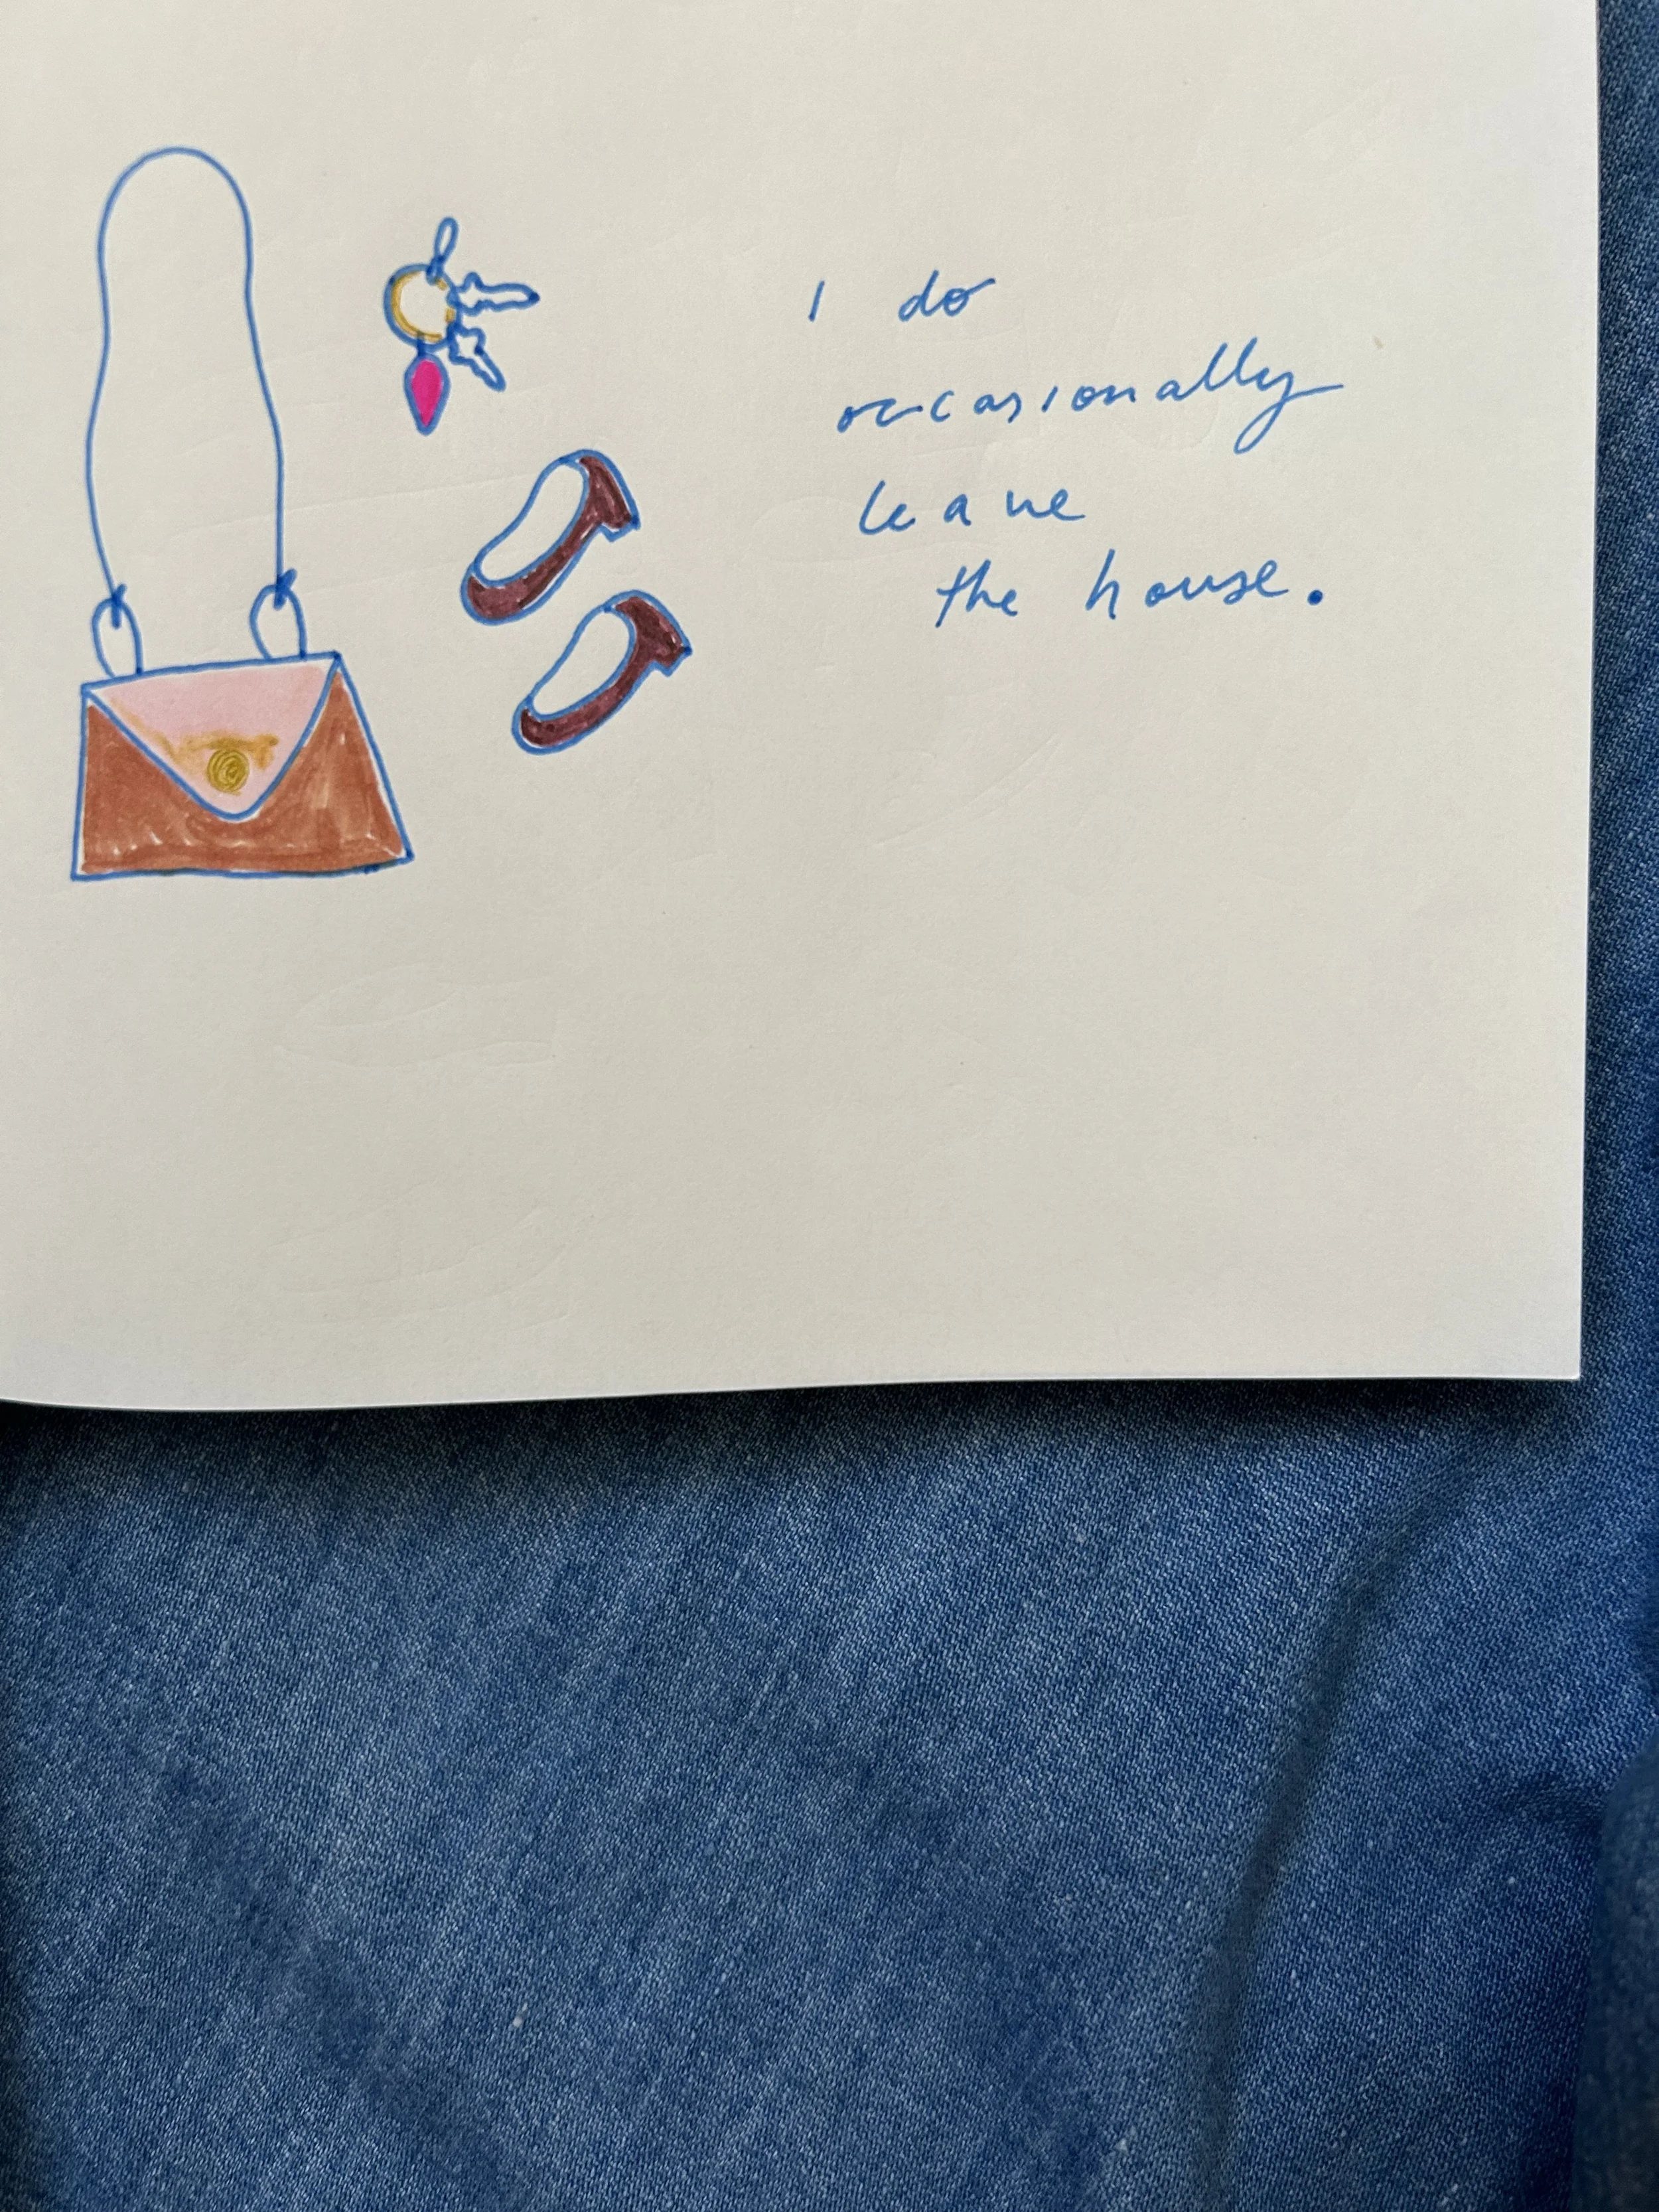 I do
occasionally
leave
the house.